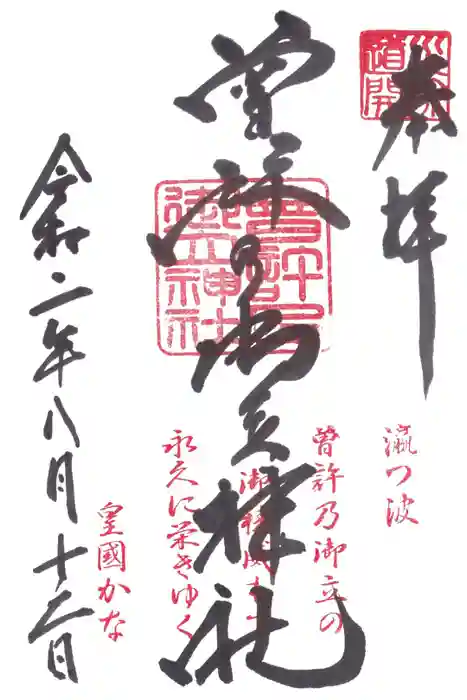 奉拝
道開
曾許乃御立神社
曾許乃御立神社
瀛つ波
曾許乃御立の
御稜威
永久に栄きゆく
皇國かな
令和二年八月十二日